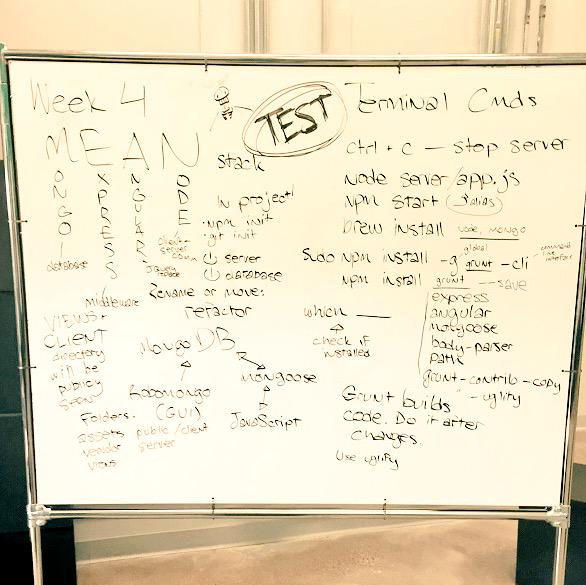 Week 4
TEST
MEAN stack
MONGO
EXPRESS
ANGULAR
NODE
database
middleware
client
server
comm
in project
npm init
git init
server
database
Rename or move:
refactor
VIEWS +
CLIENT
directory
will be
publicly
seen
MongoDB
Robomongo
(GUI)
Mongoose
JavaScript
Folders:
assets public/client
vendor server
views
Terminal Cmds
ctrl + c — stop server
node server/app.js
npm start alias
brew install node, mongo
global
command
line
interface
sudo npm install -g grunt-cli
npm install grunt --save
express
angular
mongoose
body-parser
path
grunt-contrib-copy
" -uglify
which ___
check if
installed
Grunt builds
code. Do it after
changes.
Use uglify